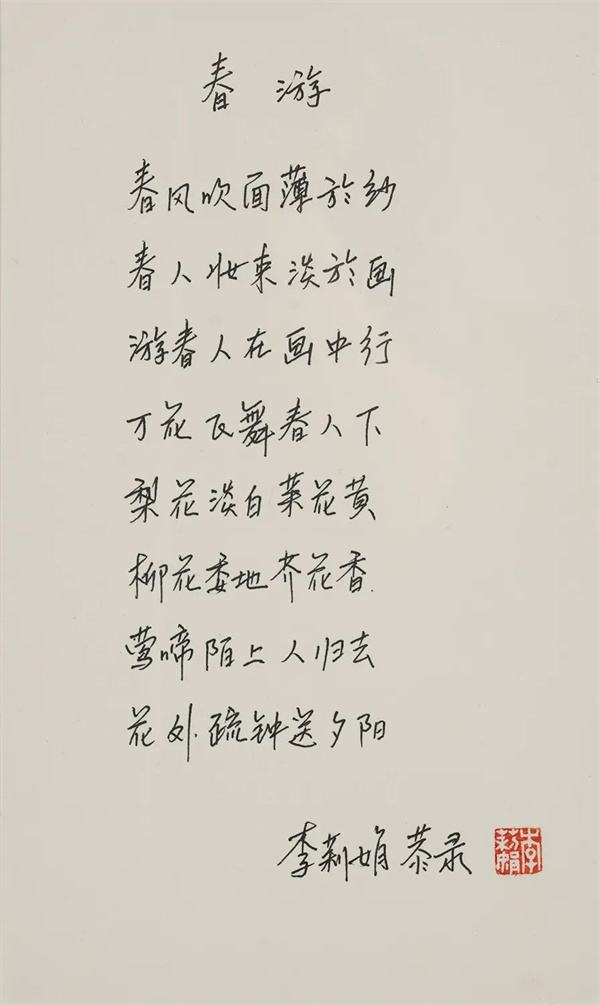 春游
春风吹面薄於纱
春人妆束淡於画
游春人在画中行
万花飞舞春人下
梨花淡白菜花黄
柳花委地芥花香
莺啼陌上人归去
花外疏钟送夕阳
李莉娟恭录
李莉娟